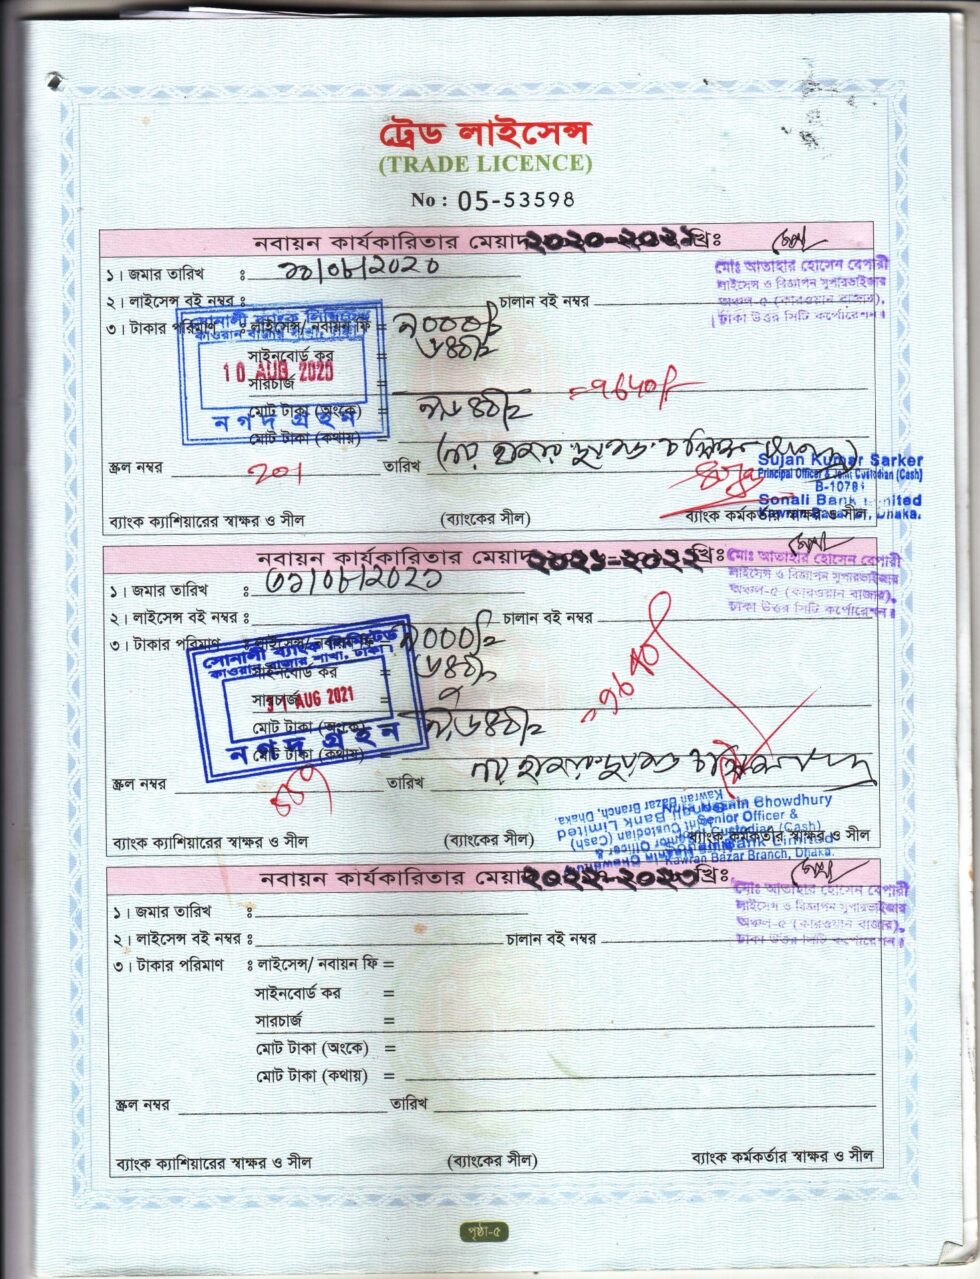 ট্রেড লাইসেন্স
(TRADE LICENCE)
No : 05-53598
নবায়ন কার্যকারিতার মেয়াদ ২০২০-২০২১ খ্রিঃ
মোঃ আতাহার হোসেন বেপারী
লাইসেন্স ও বিজ্ঞাপন সুপারভাইজার
অঞ্চল-৫ (কারওয়ান বাজার),
ঢাকা উত্তর সিটি কর্পোরেশন।
১। জমার তারিখ :
২। লাইসেন্স বই নম্বর : চালান বই নম্বর
৩। টাকার পরিমাণ : লাইসেন্স/ নবায়ন ফি =
সাইনবোর্ড কর =
সারচার্জ =
মোট টাকা (অংকে) =
মোট টাকা (কথায়) =
সোনালী ব্যাংক লিমিটেড
কাওরান বাজার শাখা, ঢাকা।
10 AUG 2020
নগদ গ্রহন
স্ক্রল নম্বর 201 তারিখ
Sujan Kumar Sarker
Principal Officer & Joint Custodian (Cash)
Sonali Bank Limited
Kawran Bazar Br, Dhaka.
ব্যাংক ক্যাশিয়ারের স্বাক্ষর ও সীল (ব্যাংকের সীল) ব্যাংক কর্মকর্তার স্বাক্ষর ও সীল
নবায়ন কার্যকারিতার মেয়াদ ২০২১-২০২২ খ্রিঃ
মোঃ আতাহার হোসেন বেপারী
লাইসেন্স ও বিজ্ঞাপন সুপারভাইজার
অঞ্চল-৫ (কারওয়ান বাজার),
ঢাকা উত্তর সিটি কর্পোরেশন।
১। জমার তারিখ :
২। লাইসেন্স বই নম্বর : চালান বই নম্বর
৩। টাকার পরিমাণ : লাইসেন্স/ নবায়ন ফি =
সাইনবোর্ড কর =
সারচার্জ =
মোট টাকা (অংকে) =
মোট টাকা (কথায়) =
সোনালী ব্যাংক লিমিটেড
কাওরান বাজার শাখা, ঢাকা।
AUG 2021
নগদ গ্রহন
স্ক্রল নম্বর তারিখ
Chowdhury
Senior Officer &
Joint Custodian (Cash)
Sonali Bank Limited
Kawran Bazar Branch, Dhaka.
ব্যাংক ক্যাশিয়ারের স্বাক্ষর ও সীল (ব্যাংকের সীল) ব্যাংক কর্মকর্তার স্বাক্ষর ও সীল
নবায়ন কার্যকারিতার মেয়াদ ২০২২-২০২৩ খ্রিঃ
মোঃ আতাহার হোসেন বেপারী
লাইসেন্স ও বিজ্ঞাপন সুপারভাইজার
অঞ্চল-৫ (কারওয়ান বাজার),
ঢাকা উত্তর সিটি কর্পোরেশন।
১। জমার তারিখ :
২। লাইসেন্স বই নম্বর : চালান বই নম্বর
৩। টাকার পরিমাণ : লাইসেন্স/ নবায়ন ফি =
সাইনবোর্ড কর =
সারচার্জ =
মোট টাকা (অংকে) =
মোট টাকা (কথায়) =
স্ক্রল নম্বর তারিখ
ব্যাংক ক্যাশিয়ারের স্বাক্ষর ও সীল (ব্যাংকের সীল) ব্যাংক কর্মকর্তার স্বাক্ষর ও সীল
পৃষ্ঠা-৫